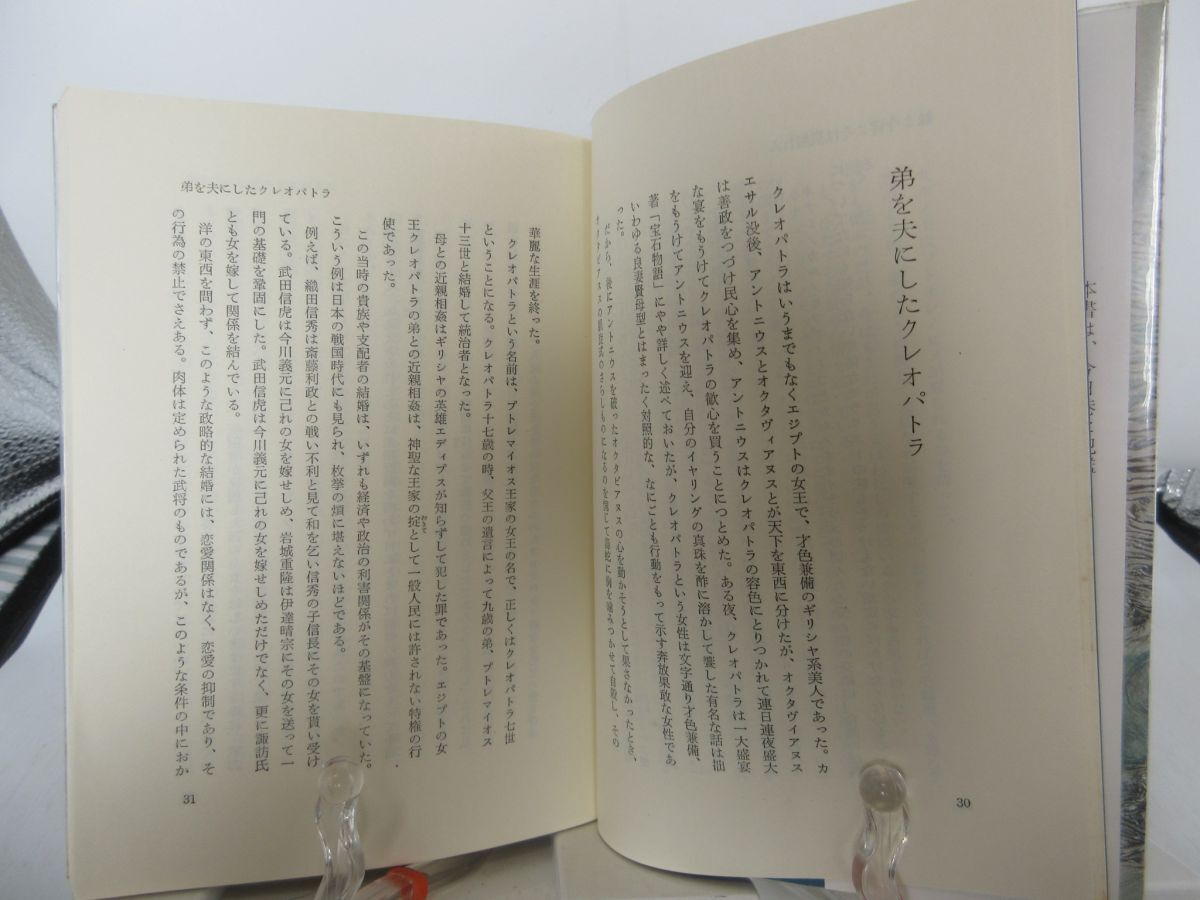 弟を夫にしたクレオパトラ
クレオパトラはいうまでもなくエジプトの女王で、才色兼備のギリシャ系美人であった。カ
エサル没後、アントニウスとオクタヴィアヌスとが天下を東西に分けたが、オクタヴイアヌス
は善政をつづけ民心を集め、アントニウスはクレオパトラの容色にとりつかれて連日連夜盛大
な宴をもうけてクレオパトラの歓心を買うことにつとめた。ある夜、クレオパトラは一大盛宴
をもうけてアントニウスを迎え、自分のイヤリングの真珠を酢に溶かして饗した有名な話は拙
著「宝石物語」にやや詳しく述べておいたが、クレオパトラという女性は文字通り才色兼備、
いわゆる良妻賢母型とはまったく対照的な、なにごとも行動をもって示す奔放果敢な女性であ
った。
だから、後にアントニウスを破ったオクタビアヌスの心を動かそうとして果さなかったとき、
オクタビアヌスの凱旋式のさらしものになるのを
自殺し、その
30
本書は、今
弟を夫にしたクレオパトラ
華麗な生涯を終った。
クレオパトラという名前は、プトレマイオス王家の女王の名で、正しくはクレオパトラ七世
ということになる。クレオパトラ十七歳の時、父王の遺言によって九歳の弟、プトレマイオス
十三世と結婚して統治者となった。
母との近親相姦はギリシャの英雄エディプスが知らずして犯した罪であった。エジプトの女
王クレオパトラの弟との近親相姦は、神聖な王家の掟として一般人民には許されない特権の行
使であった。
この当時の貴族や支配者の結婚は、いずれも経済や政治の利害関係がその基盤になっていた。
こういう例は日本の戦国時代にも見られ、枚挙の煩に堪えないほどである。
例えば、織田信秀は斎藤利政との戦い不利と見て和を乞い信秀の子信長にその女を貰い受け
ている。武田信虎は今川義元に己れの女を嫁せしめ、岩城重隆は伊達晴宗にその女を送って一
門の基礎を鞏固にした。武田信虎は今川義元に己れの女を嫁せしめただけでなく、更に諏訪氏
とも女を嫁して関係を結んでいる。
洋の東西を問わず、このような政略的な結婚には、恋愛関係はなく、恋愛の抑制であり、そ
の行為の禁止でさえある。肉体は定められた武将のものであるが、このような条件の中におか
31